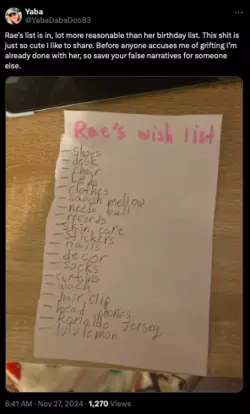 Yaba
@YabaDabaDoo83
Rae's list is in, lot more reasonable than her birthday list. This shit is
just so cute I like to share. Before anyone accuses me of grifting I'm
already done with her, so save your false narratives for someone
else.
Rae's wish list
- shoes
- desk
- chair
- Lego
- clothes
- squish mellow
- needo ball
- records
- skin care
- stickers
- nails
- decor
- socks
- curtains
- wach
- hair clip
- head phones
- Ronaldo Jersey
- lululemon
8:41 AM · Nov 27, 2024 · 1,270 Views